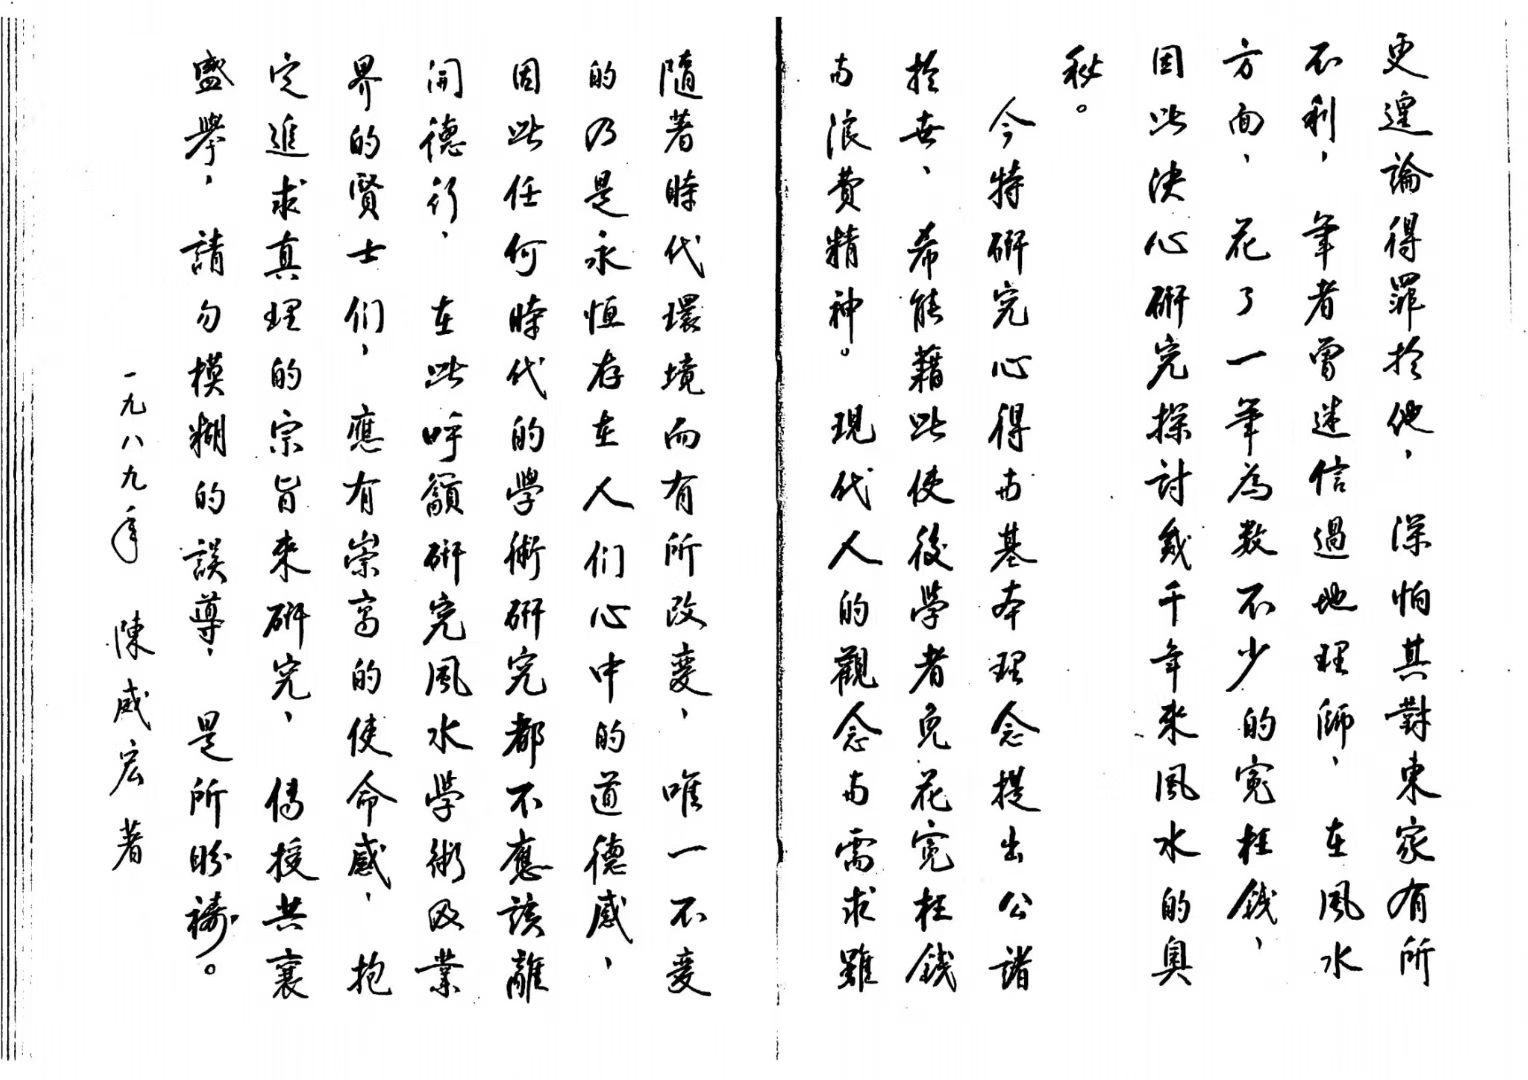 更遑論得罪於他，深怕其對東家有所
不利，筆者曾迷信過地理師，在風水
方面，花了一筆為数不少的寃枉錢，
因此决心研究探討幾千年來風水的奥
秘。
今特研究心得与基本理念提出公諸
於世，希能藉此使後學者免花寃枉錢
与浪費精神。現代人的觀念与需求雖
隨著時代環境而有所改變，唯一不变
的乃是永恒存在人们心中的道德感，
因此任何時代的學術研究都不應該離
開德行，在此呼籲研究風水學術及業
界的賢士们，應有崇高的使命感，抱
定進求真理的宗旨來研究，傳授共襄
盛舉，請勿模糊的誤導，是所盼禱。
一九八九年 陳威宏著